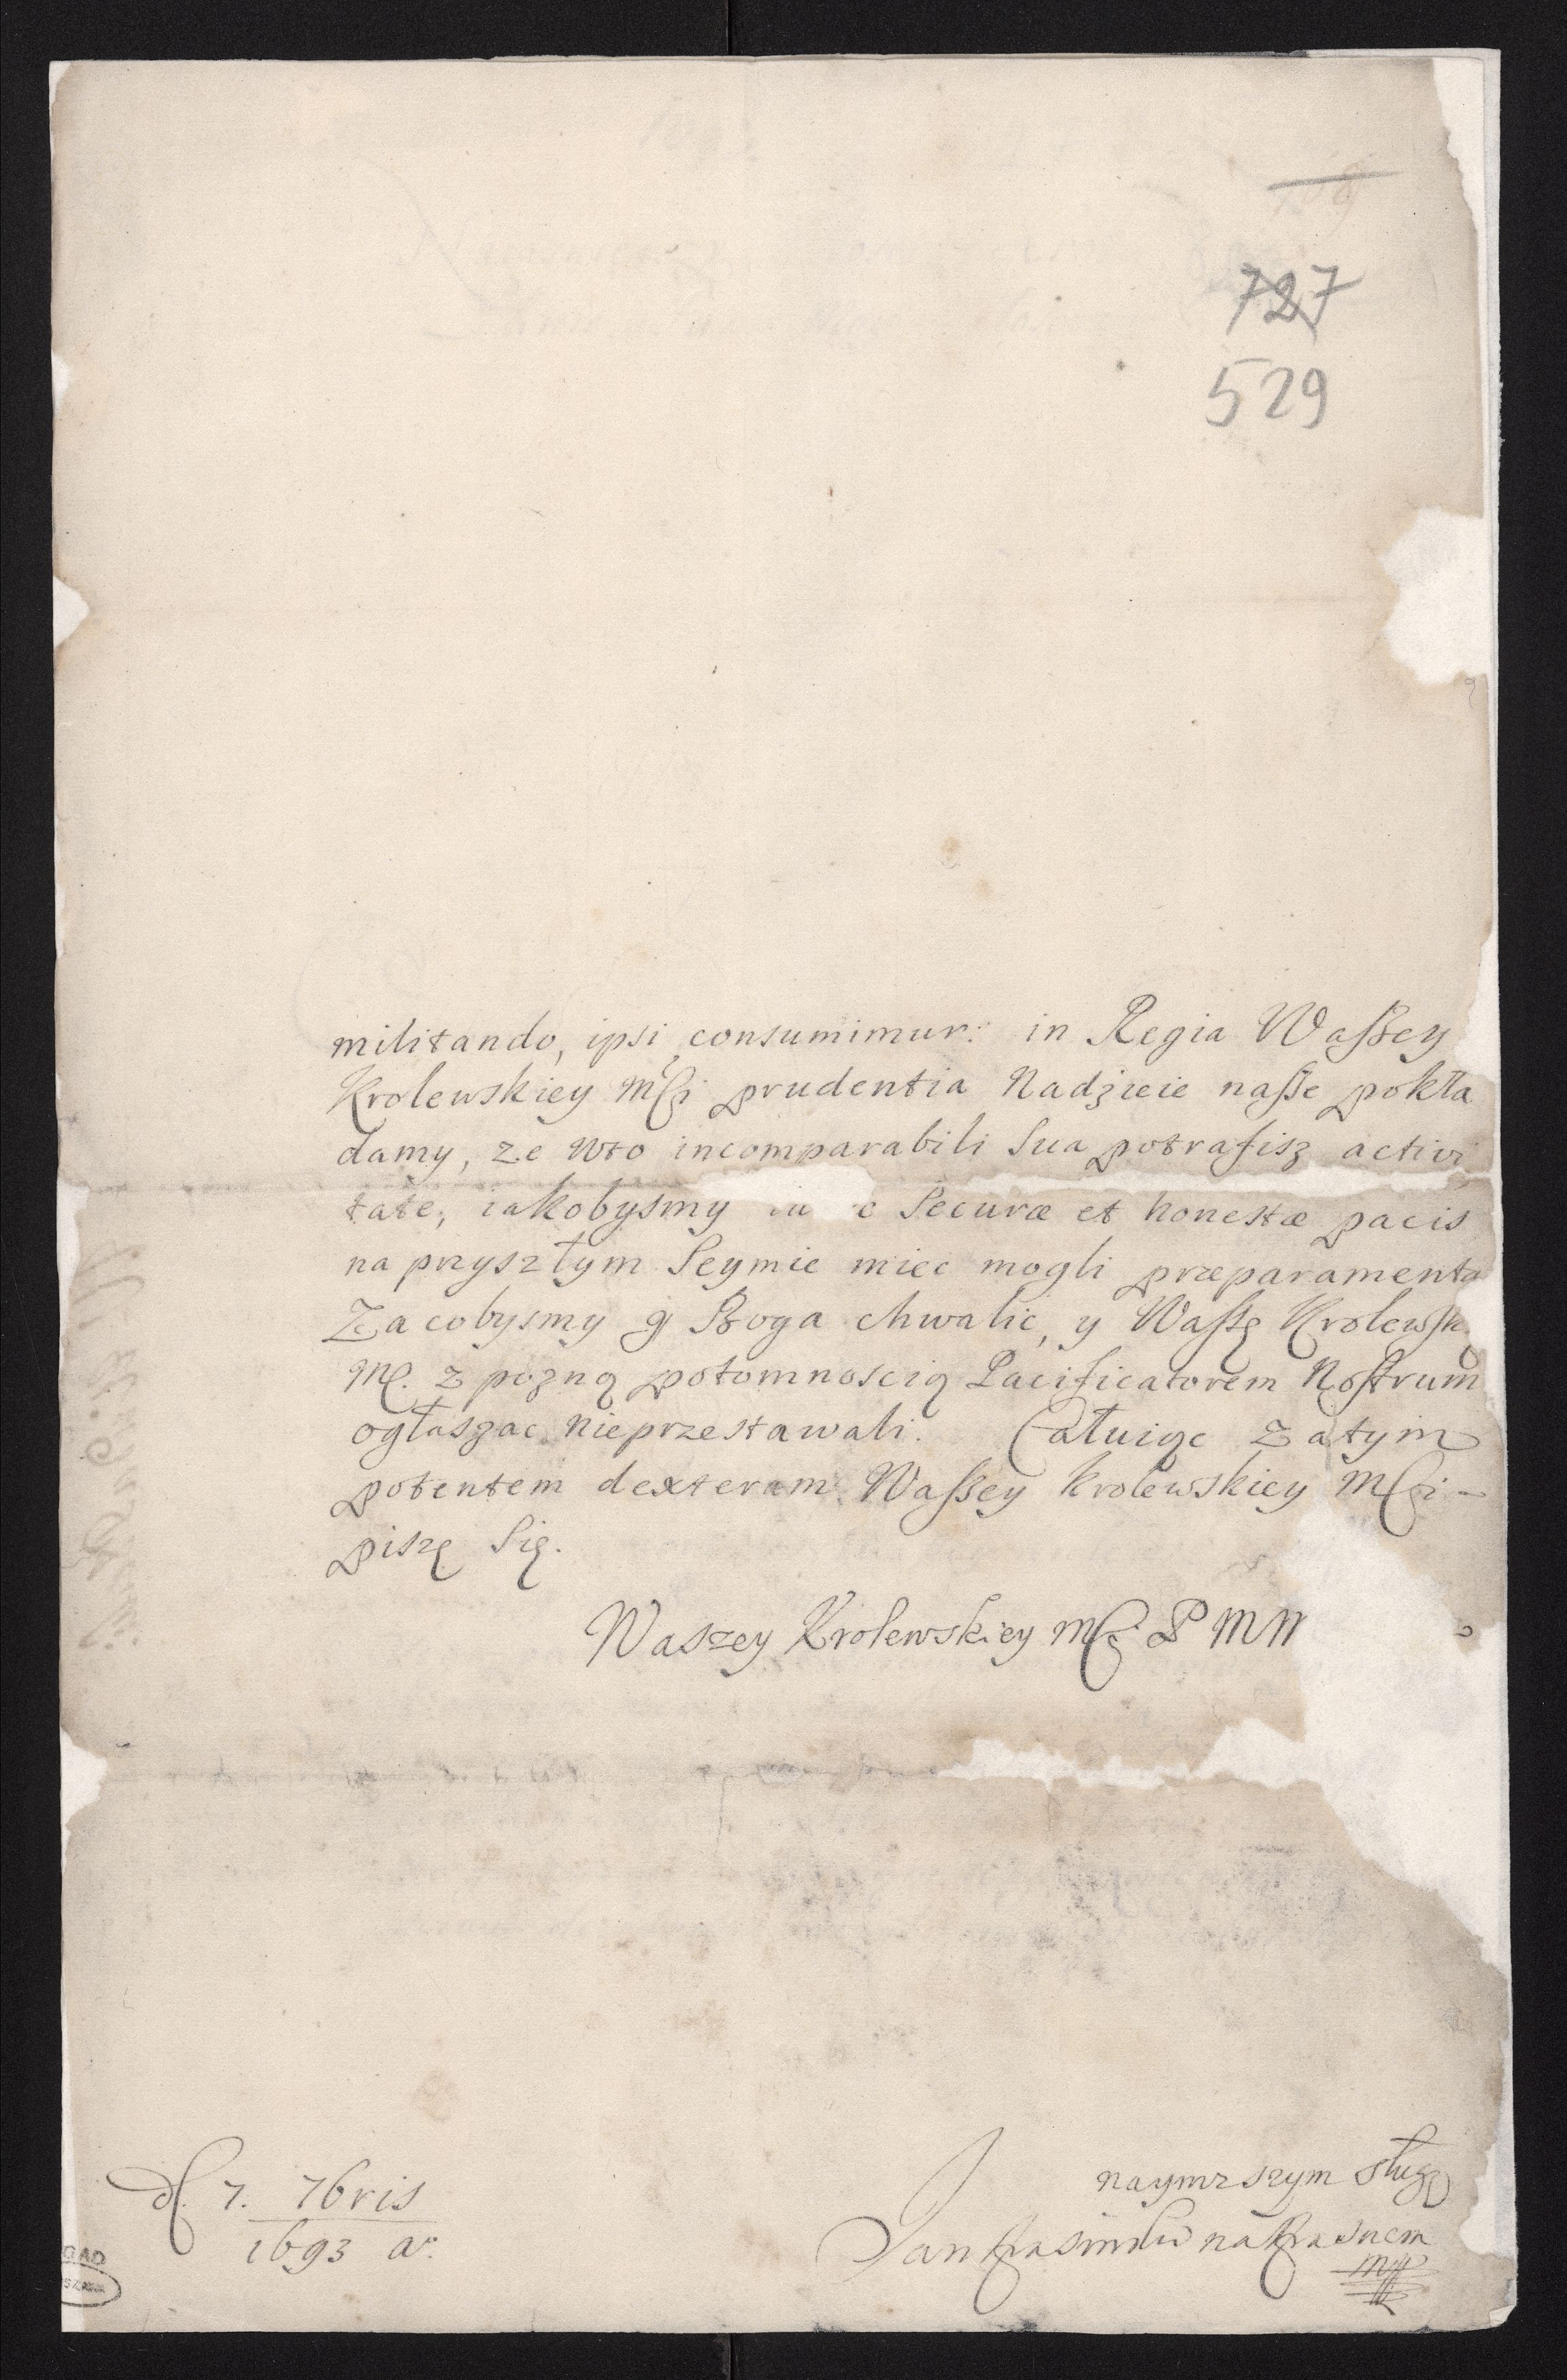 727
529
militando, ipsi consumimur: in Regia Waszey
Krolewskiey Mci prudentia Nadzieie nasze pokła
damy, ze wto incomparabili Sua potrafisz activi
tate, iakobysmy Securæ et honestæ pacis
na przyszłym Seymie miec mogli præparamenta
Zacobysmy y Boga chwalic, y Waszę Krolewsk
M. z pozną potomnoscią Pacificatorem Nostrum
ogłaszac nieprzestawali. Całuiąc zatym
potentem dexteram Waszey krolewskiey Mci -
piszę Się.
Waszey Krolewskiey Mci P M M
naymszym sługą
Jan Krasinski na Krasnem
mp
d. 7. 7bris
1693 a.